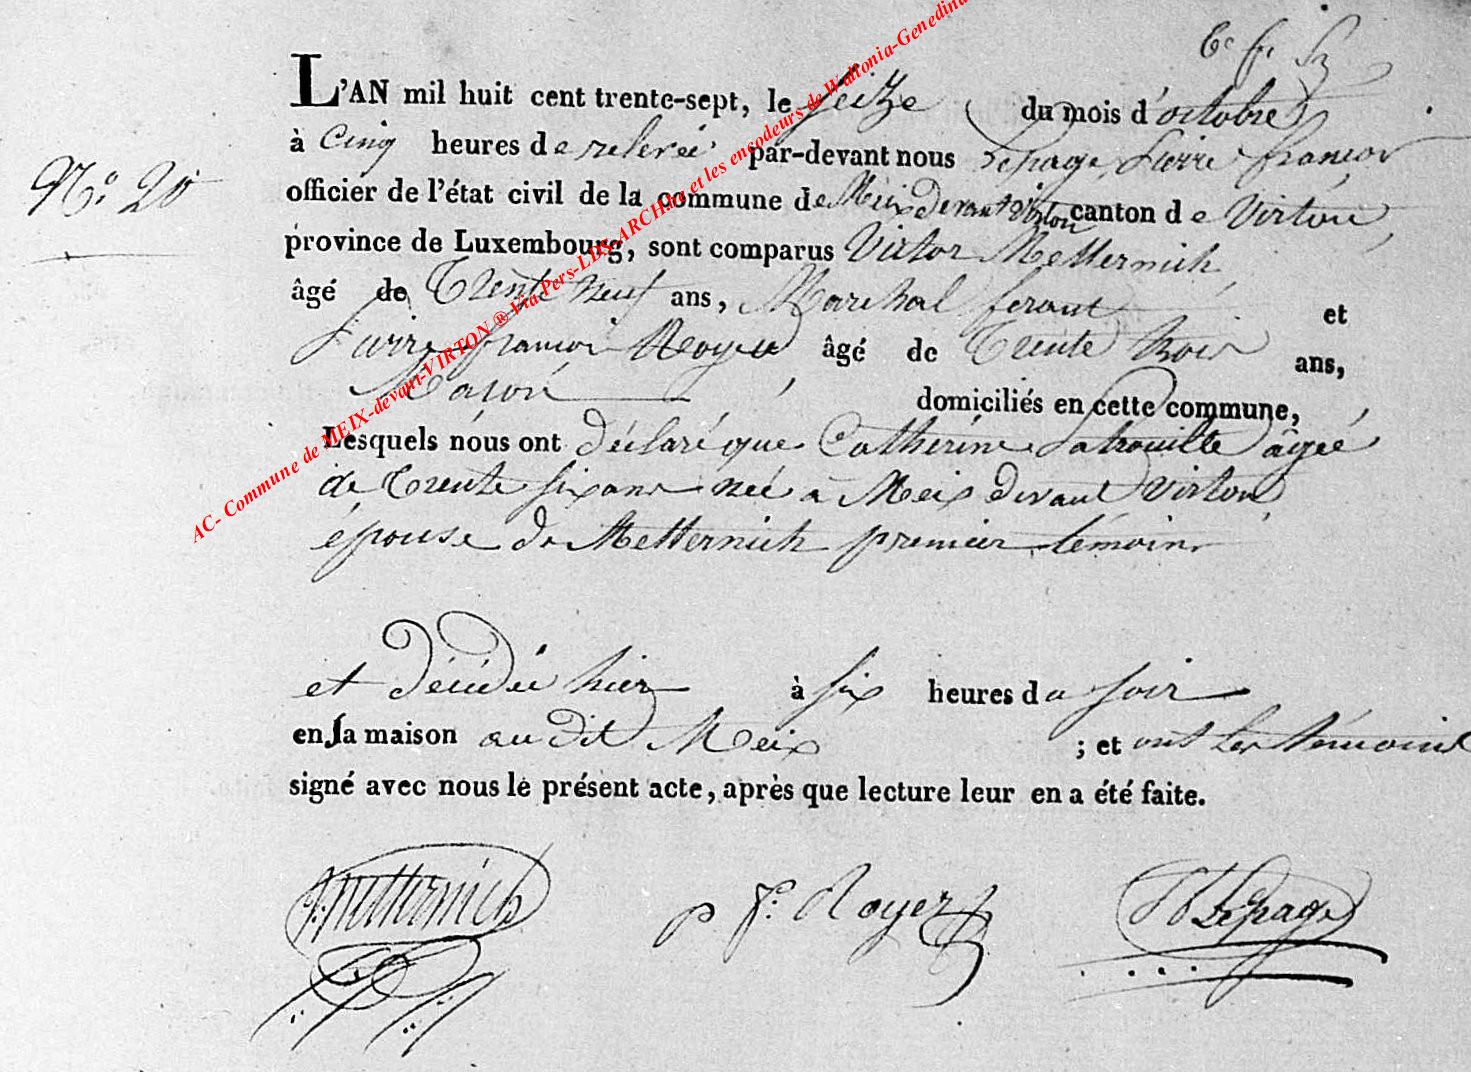 L'AN mil huit cent trente-sept, le seize du mois d'octobre
à cinq heures de relevée par-devant nous Lepage Pierre françois
N.° 20
officier de l'état civil de la commune de Meix devant Virton canton de Virton
province de Luxembourg, sont comparus Victor Metternich
âgé de Trente neuf ans, Marechal ferant et
Pierre françois Royer âgé de Trente trois ans,
Maçon domiciliés en cette commune,
Lesquels nous ont déclaré que Catherine Latrouille âgée
de trente six ans née à Meix devant Virton,
épouse de Metternich premier témoin
et décédée hier à six heures du soir
en sa maison audit Meix ; et ont les témoins
signé avec nous le présent acte, après que lecture leur en a été faite.
Metternich p f. Royer Lepage
AC- Commune de MEIX-devant-VIRTON ® Via Pers-LDS-ARCH.be et les encodeurs de Waltonia-Genedina